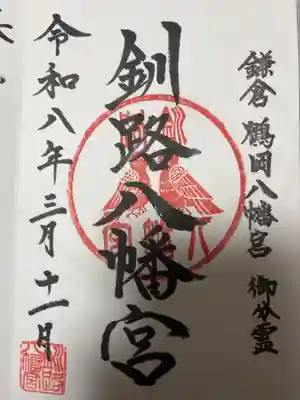 鎌倉 鶴岡八幡宮 御分霊
釧路八幡宮
令和八年三月十一月